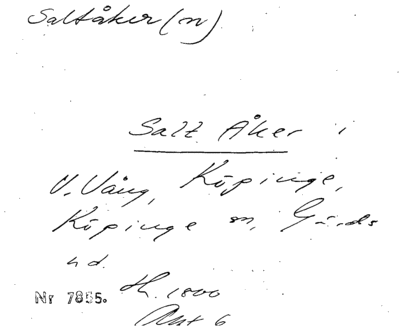 Saltåker (n)
Salt Åker i
V. Vång, Köpinge,
Köpinge sn, Gärds
hd.
Nr 7855. H. 1800
Akt 6